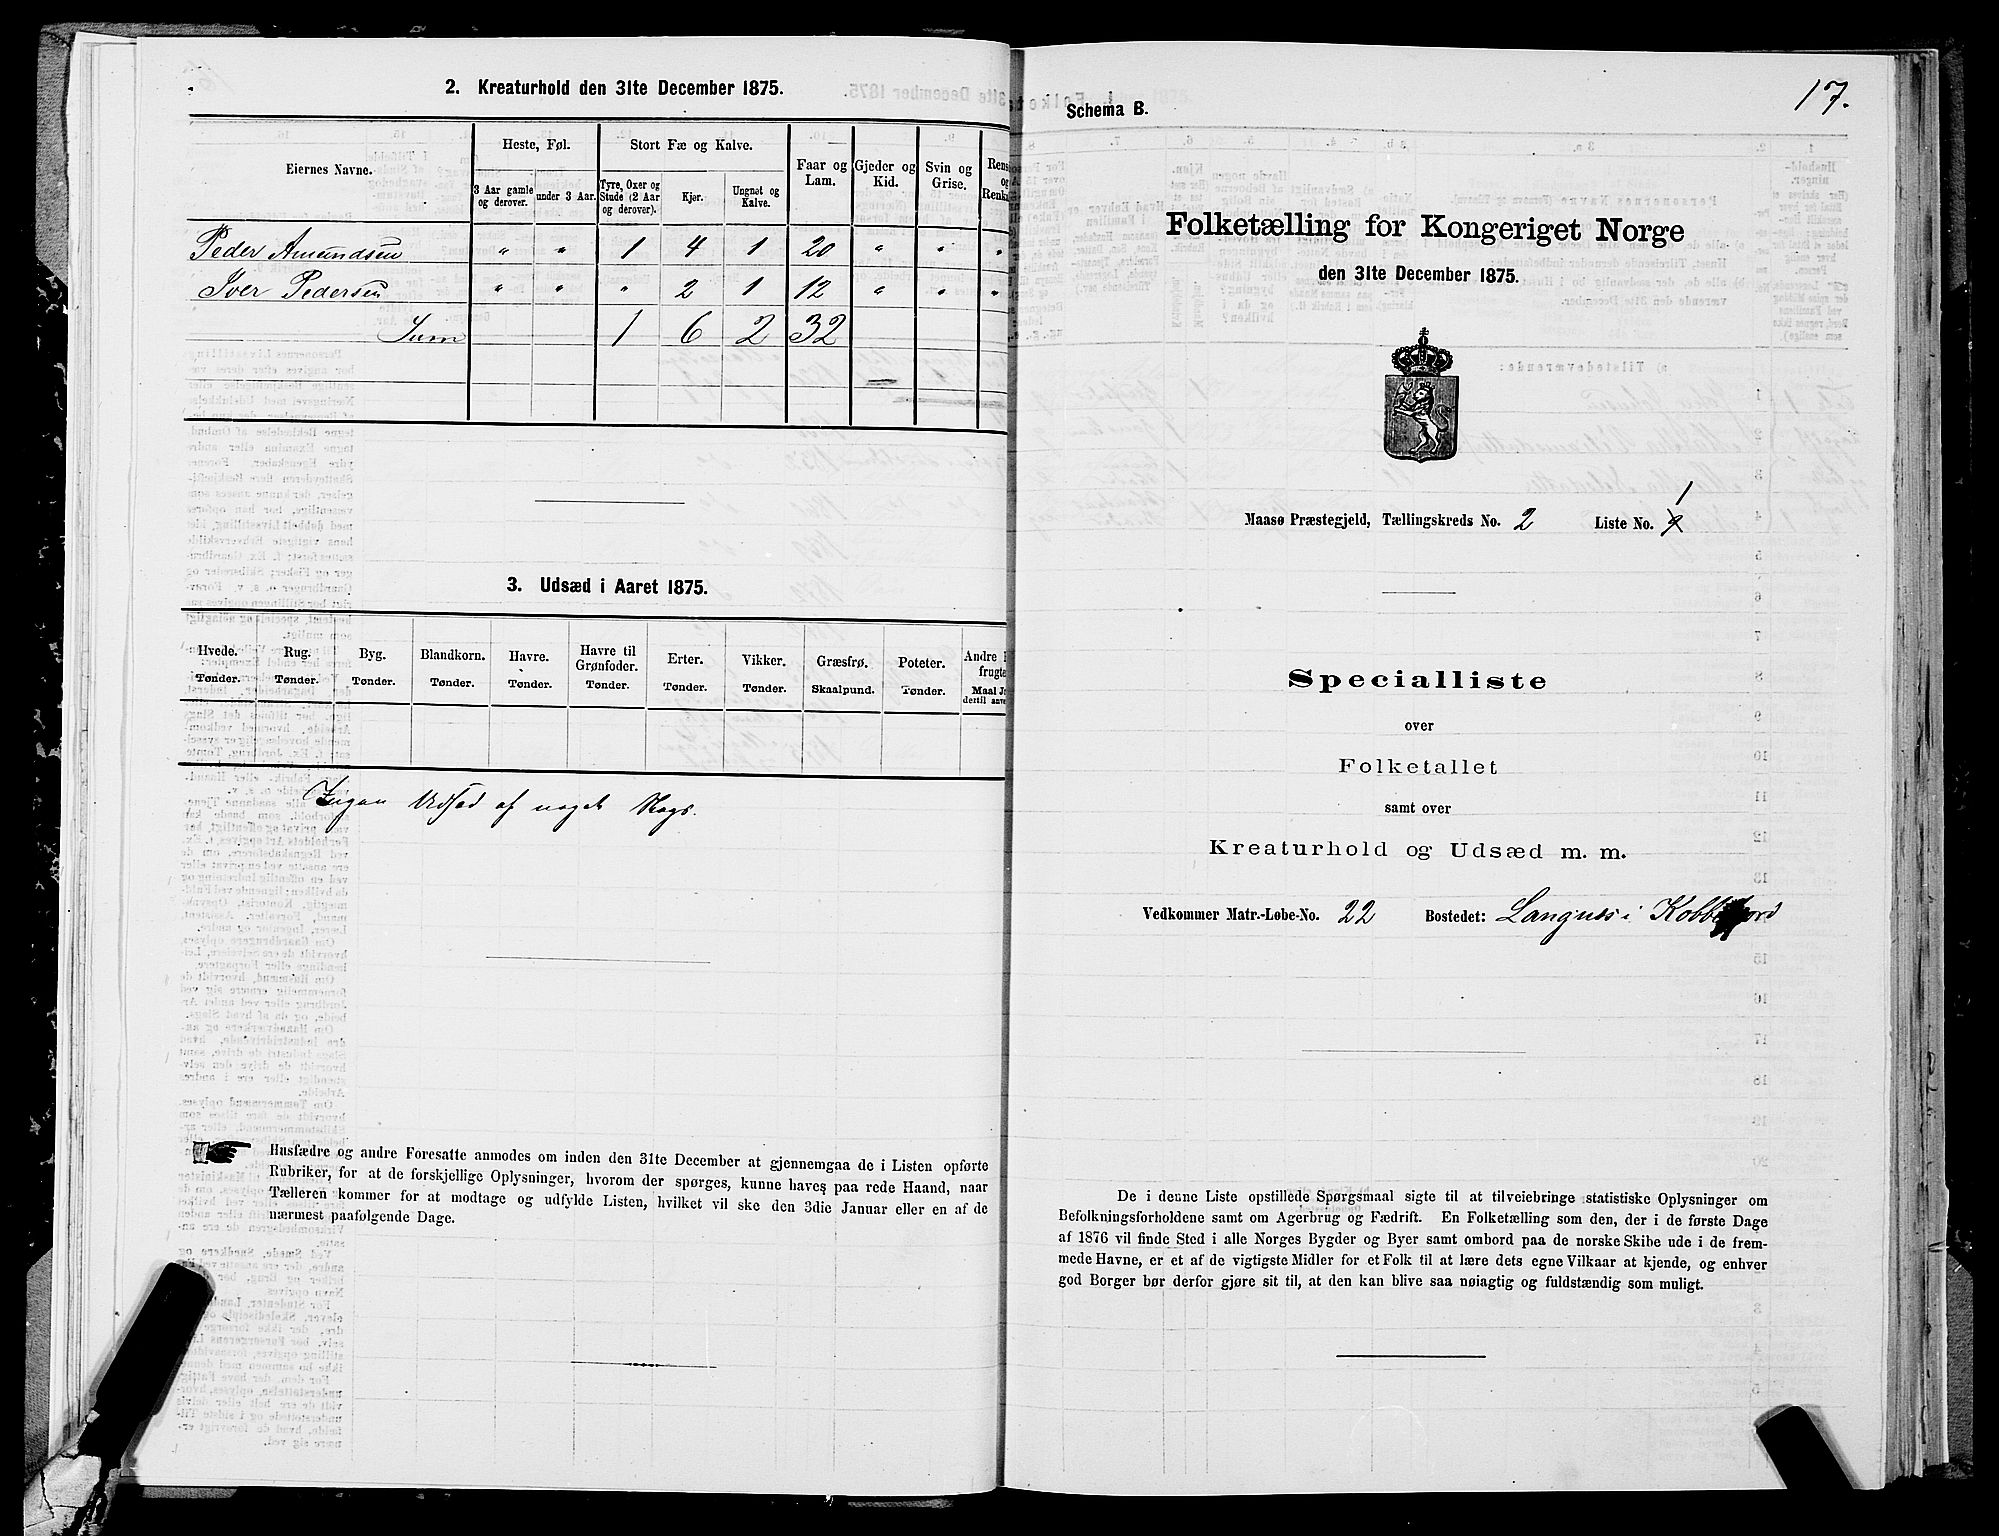 2. Kreaturhold den 31te December 1875.
Eiernes Navne.
Heste, Føl.
Stort Fæ og Kalve.
Faar og Lam.
Gjeder og Kid.
Svin og Grise.
Rens
og
Renka
3 Aar gamle og derover.
under 3 Aar.
Tyre, Oxer og Stude (2 Aar og derover).
Kjør.
Ungnøt og Kalve.
Peder Amundsen " " 1 4 1 20 " " "
Iver Pedersen " " " 2 1 12 " " "
Sum 1 6 2 32
3. Udsæd i Aaret 1875.
Hvede. Tønder.
Rug. Tønder.
Byg. Tønder.
Blandkorn. Tønder.
Havre. Tønder.
Havre til Grønfoder. Tønder.
Erter. Tønder.
Vikker. Tønder.
Græsfrø. Skaalpund.
Poteter. Tønder.
Andre
frugte
Maal J
dertil anv
Ingen Udsæd af noget Slags.
Husfædre og andre Foresatte anmodes om inden den 31te December at gjennemgaa de i Listen opførte
Rubriker, for at de forskjellige Oplysninger, hvorom der spørges, kunne haves paa rede Haand, naar
Tælleren kommer for at modtage og udfylde Listen, hvilket vil ske den 3die Januar eller en af de
nærmest paafølgende Dage.
17.
Schema B.
Folketælling for Kongeriget Norge
den 31te December 1875.
1
Maasø Præstegjeld, Tællingskreds No. 2 Liste No.
Specialliste
over
Folketallet
samt over
Kreaturhold og Udsæd m. m.
Vedkommer Matr.-Løbe-No. 22 Bostedet: Langnes i Kobbefjord
De i denne Liste opstillede Spørgsmaal sigte til at tilveiebringe statistiske Oplysninger om
Befolkningsforholdene samt om Agerbrug og Fædrift. En Folketælling som den, der i de første Dage
af 1876 vil finde Sted i alle Norges Bygder og Byer samt ombord paa de norske Skibe ude i de frem-
mede Havne, er et af de vigtigste Midler for et Folk til at lære dets egne Vilkaar at kjende, og enhver
god Borger bør derfor gjøre sit til, at den kan blive saa nøiagtig og fuldstændig som muligt.